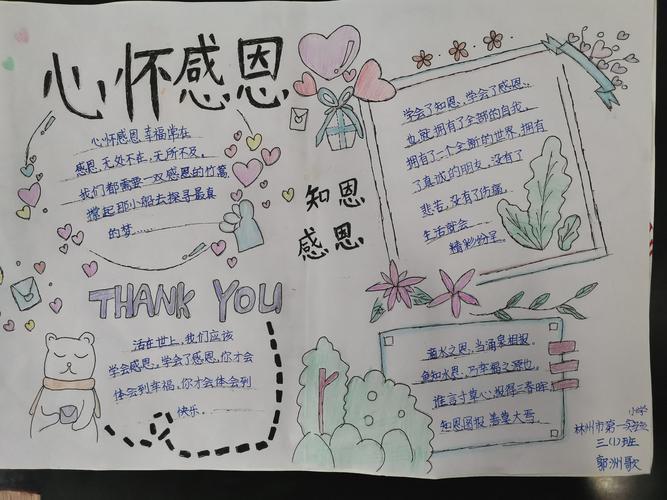 心怀感恩
心怀感恩 幸福常在
感恩，无处不在，无所不及。
我们都需要一双感恩的竹篙
撑起那小船去探寻最真
的梦……
知恩
感恩
学会了知恩，学会了感恩，
也就拥有了全部的自我。
拥有了一个全新的世界，拥有
了真诚的朋友，没有了
悲苦，没有了伤痛，
生活就会
精彩纷呈。
THANK YOU
活在世上，我们应该
学会感恩，学会了感恩，你才会
体会到幸福，你才会体会到
快乐。
滴水之恩，当涌泉相报。
鱼知水恩，乃幸福之源也。
谁言寸草心，报得三春晖。
知恩图报 善莫大焉。
小学
林州市第一实验
三(1)班
郭洲歌